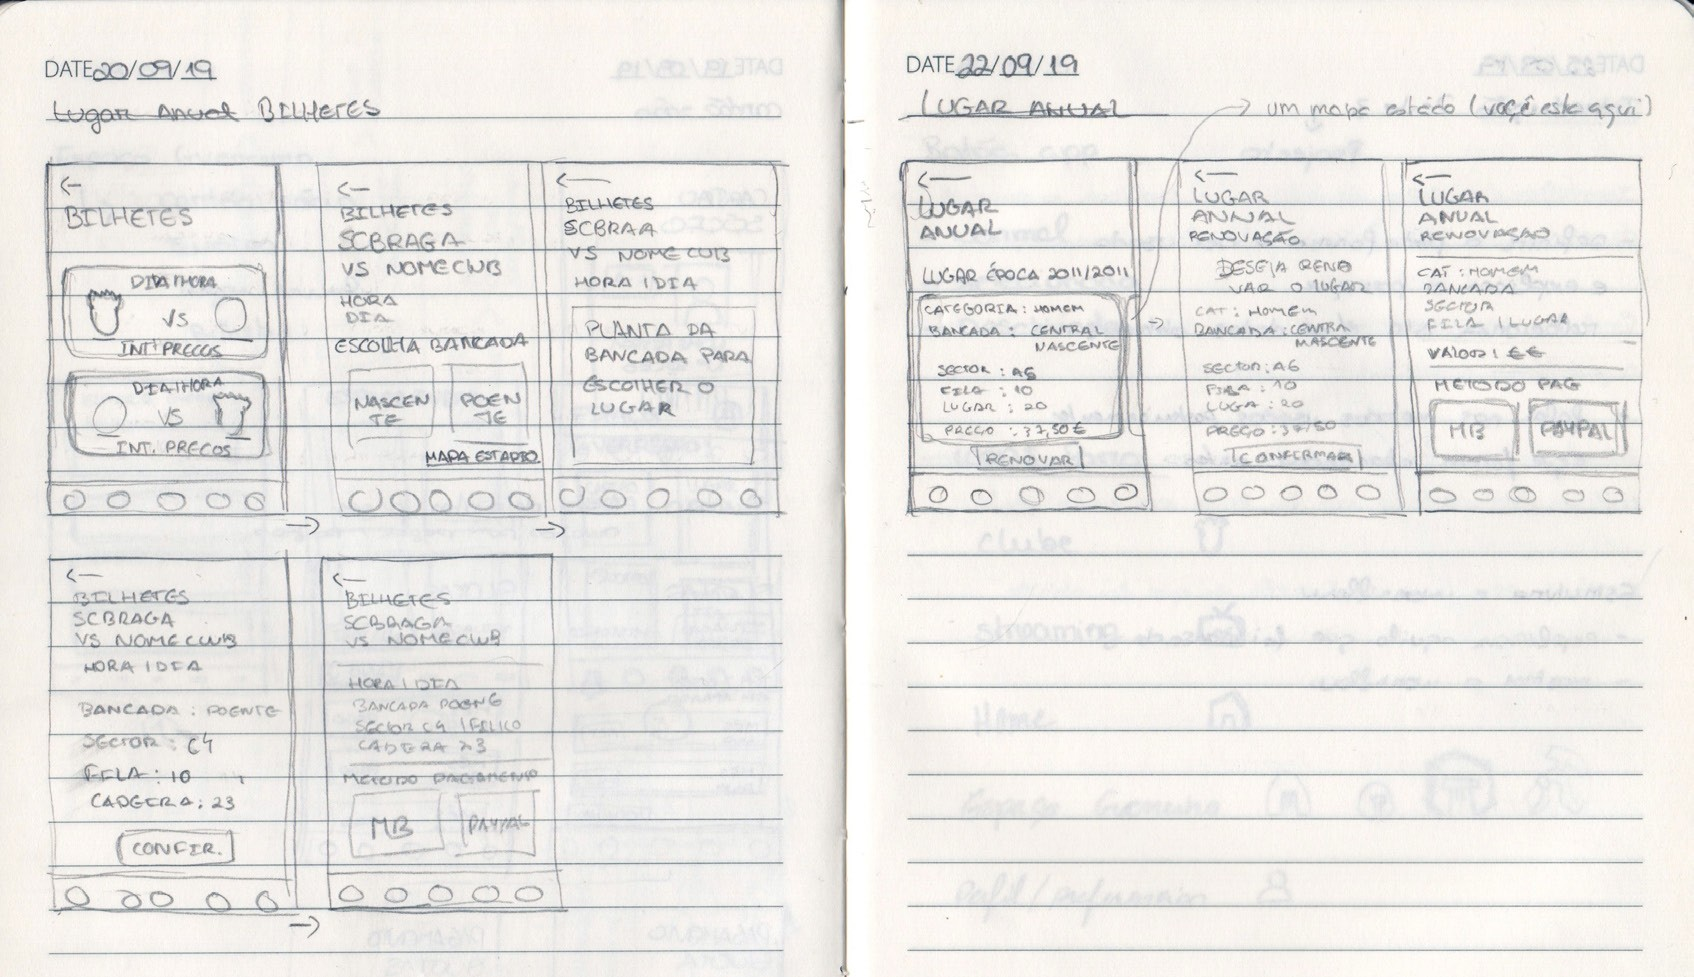 DATE 20/09/19
Lugar Anual BILHETES
←
BILHETES
DIA/HORA
VS
INT. PRECOS
DIA/HORA
VS
INT. PRECOS
←
BILHETES
SCBRAGA
VS NOMECLUB
HORA
DIA
ESCOLHA BANCADA
NASCEN
TE
POEN
TE
MAPA ESTADIO
→
←
BILHETES
SCBRAA
VS NOME CLUB
HORA | DIA
PLANTA DA
BANCADA PARA
ESCOLHER O
LUGAR
→
←
BILHETES
SCBRAGA
VS NOMECLUB
HORA | DIA
BANCADA : POENTE
SECTOR : C4
FILA : 10
CADEIRA : 23
CONFIR.
→
←
BILHETES
SCBRAGA
VS NOMECLUB
HORA | DIA
BANCADA
SECTOR C4
CADEIRA 23
METODO PAGAMENTO
MB
PAYPAL
DATE 22/09/19
LUGAR ANUAL
→ um mapa estádio (voçê este aqui)
←
LUGAR
ANUAL
LUGAR ÉPOCA 2011/2011
CATEGORIA : HOMEM
BANCADA : CENTRAL
NASCENTE
SECTOR : A6
FILA : 10
LUGAR : 20
PREÇO : 37,50 €
RENOVAR
→
←
LUGAR
ANUAL
RENOVAÇÃO
DESEJA RENO
VAR O LUGAR
CAT : HOMEM
BANCADA : CENTRA
NASCENTE
SECTOR : A6
FILA : 10
LUGA : 20
PREÇO : 37,50
CONFIRMAR
←
LUGAR
ANUAL
RENOVAÇAO
CAT : HOMEM
BANCADA
SECTOR
FILA | LUGAR
VALOR : €€
METODO PAG
MB
PAYPAL